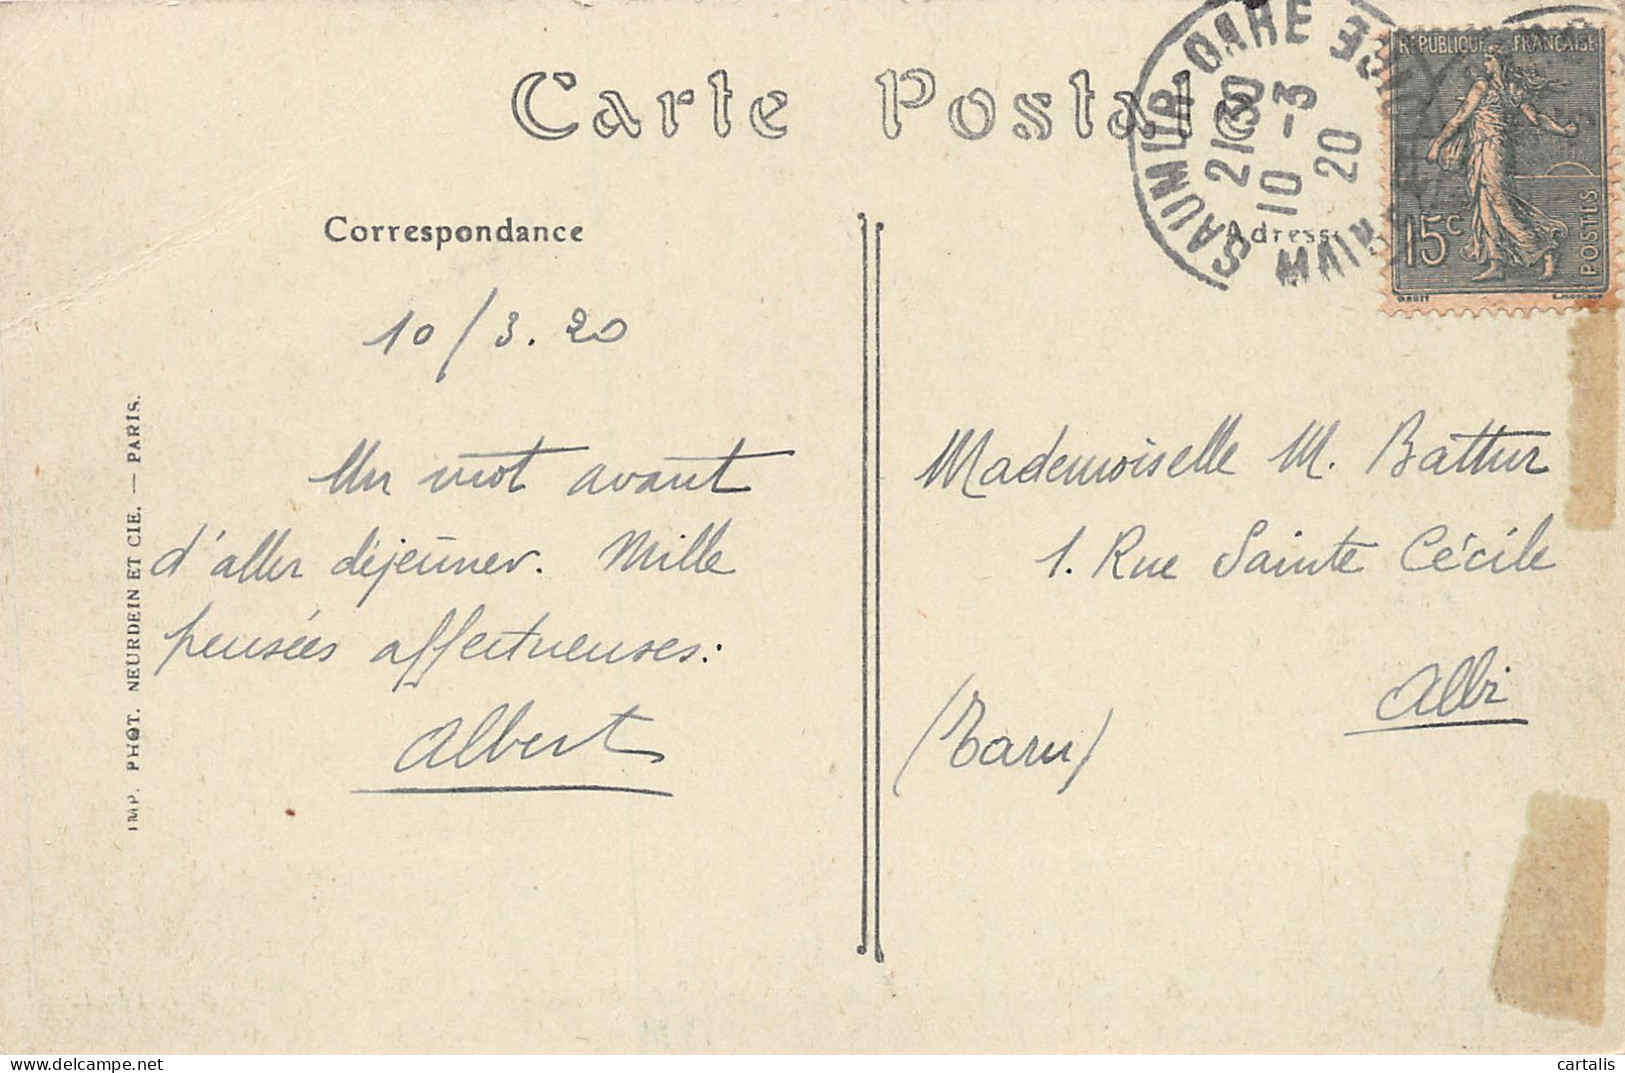 Carte Postale
Correspondance
Adresse
SAUMUR-GARE
21 30
10 -3
20
RÉPUBLIQUE FRANÇAISE
15c
POSTES
10/3.20
Un mot avant
d'aller déjeuner. Mille
pensées affectueuses.
Albert
Mademoiselle M. Battur
1. Rue Sainte Cécile
Albi
(Tarn)
IMP. PHOT. NEURDEIN ET CIE. — PARIS.
www.delcampe.net
cartalis